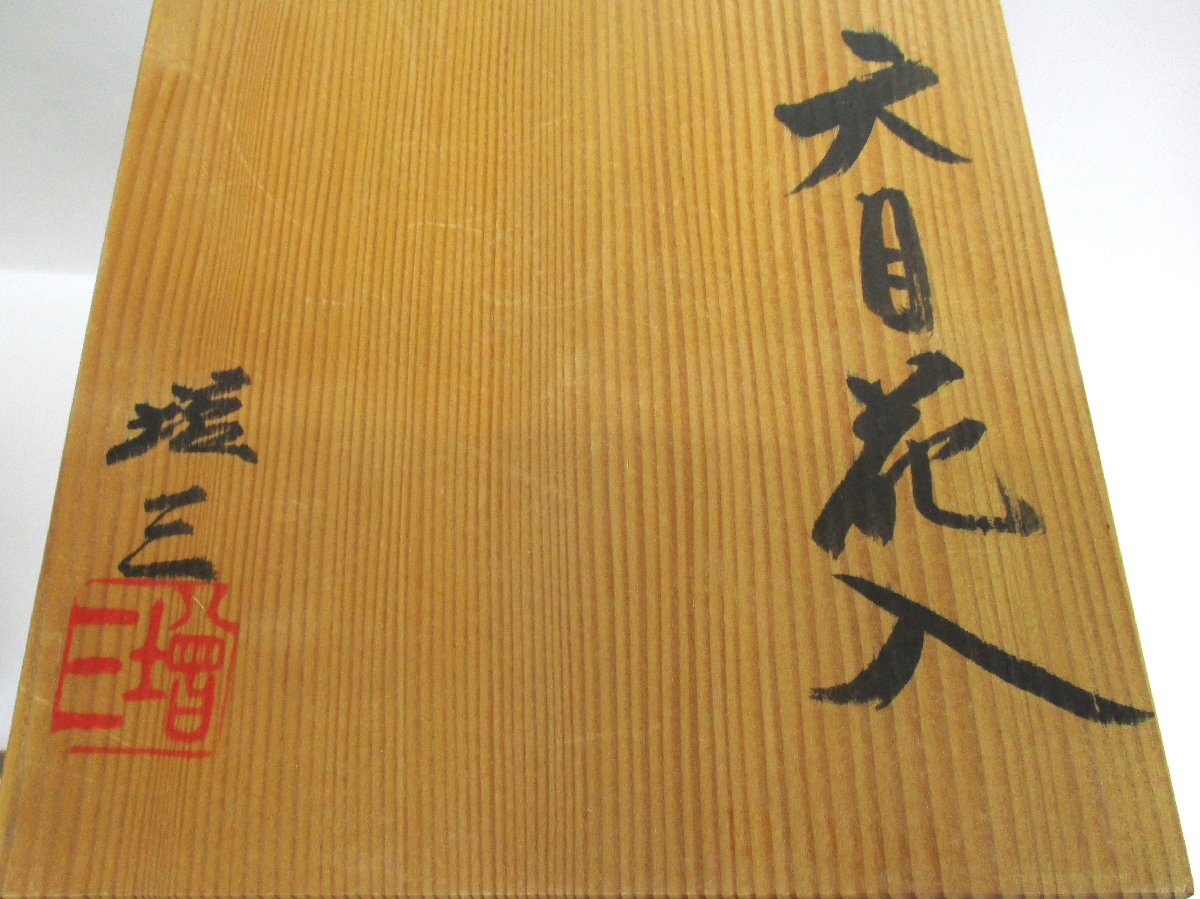 天目花入
増三
増三